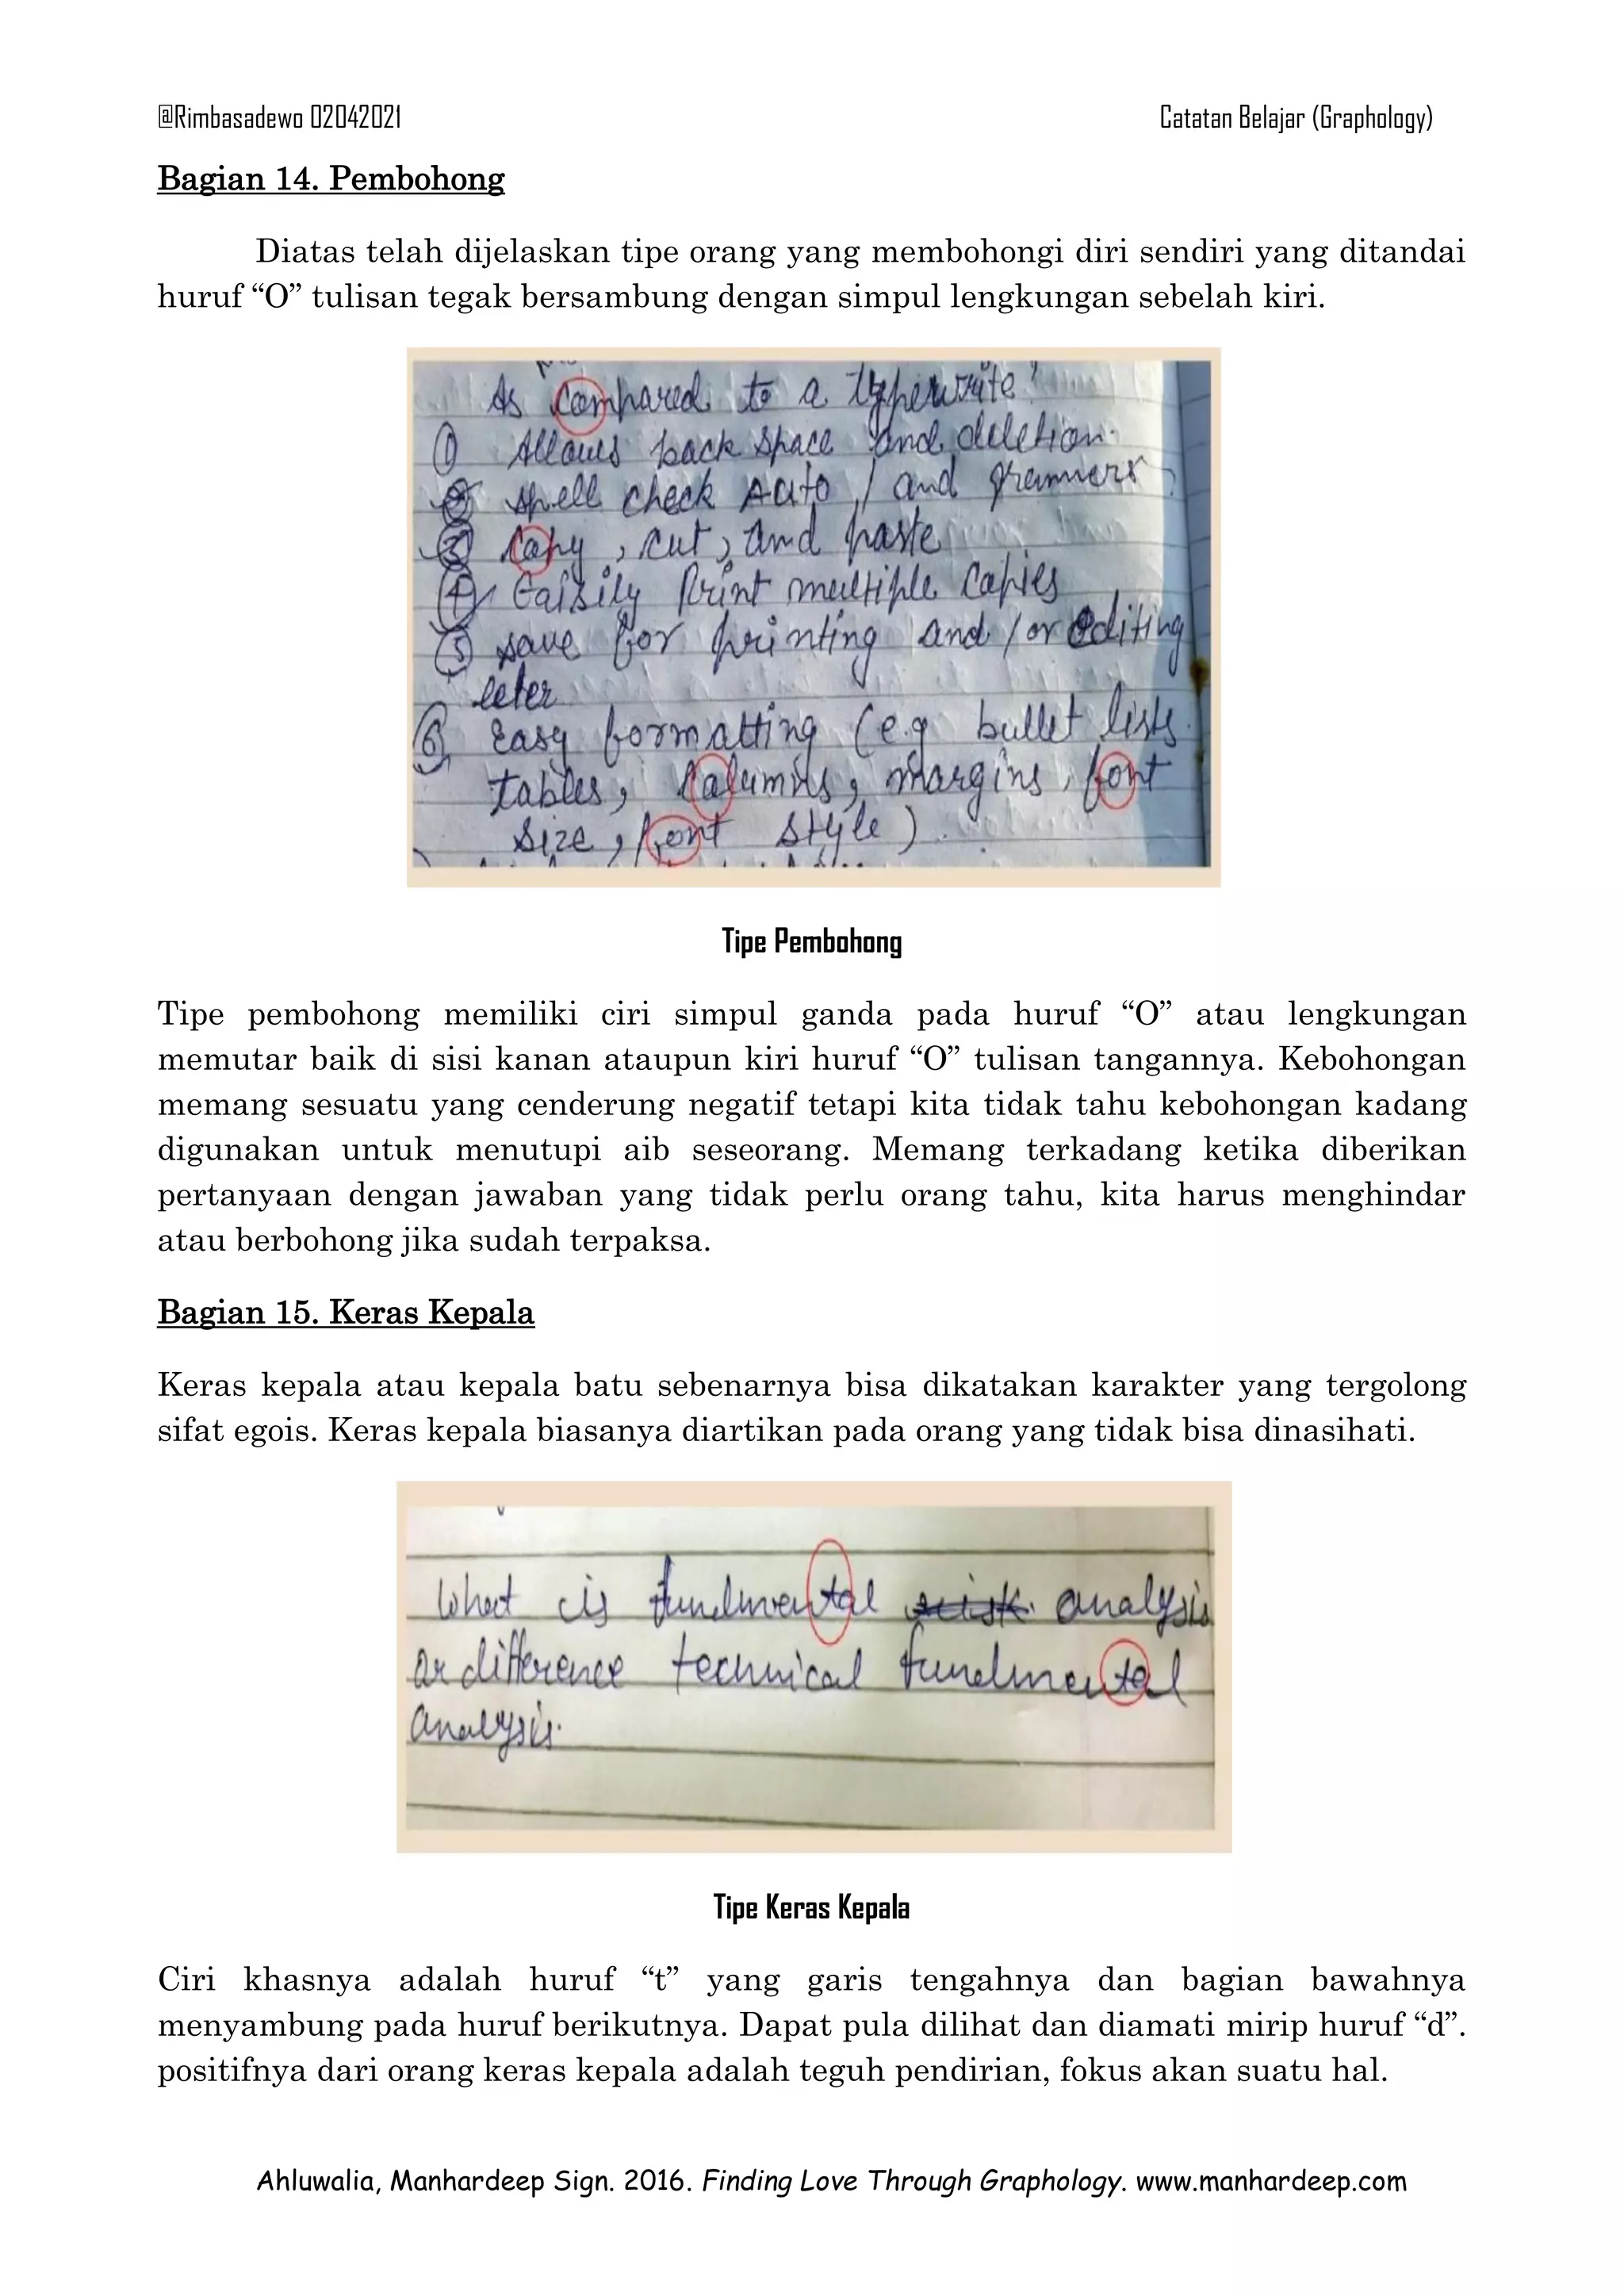 @Rimbasadewo 02042021 Catatan Belajar (Graphology)
Bagian 14. Pembohong
Diatas telah dijelaskan tipe orang yang membohongi diri sendiri yang ditandai
huruf “O” tulisan tegak bersambung dengan simpul lengkungan sebelah kiri.
As Compared to a typewrite
① Allows back space and deletion.
② spell check Auto / and grammers
③ Copy, cut, and paste
④ Eaisily Print multiple Copies
⑤ save for printing and / or editing
leter
⑥ Easy formatting (e.g bullet lists.
tables, Columns, margins, font
size, font style)
Tipe Pembohong
Tipe pembohong memiliki ciri simpul ganda pada huruf “O” atau lengkungan
memutar baik di sisi kanan ataupun kiri huruf “O” tulisan tangannya. Kebohongan
memang sesuatu yang cenderung negatif tetapi kita tidak tahu kebohongan kadang
digunakan untuk menutupi aib seseorang. Memang terkadang ketika diberikan
pertanyaan dengan jawaban yang tidak perlu orang tahu, kita harus menghindar
atau berbohong jika sudah terpaksa.
Bagian 15. Keras Kepala
Keras kepala atau kepala batu sebenarnya bisa dikatakan karakter yang tergolong
sifat egois. Keras kepala biasanya diartikan pada orang yang tidak bisa dinasihati.
What is fundmental analysis
or difference technical fundmental
analysis.
Tipe Keras Kepala
Ciri khasnya adalah huruf “t” yang garis tengahnya dan bagian bawahnya
menyambung pada huruf berikutnya. Dapat pula dilihat dan diamati mirip huruf “d”.
positifnya dari orang keras kepala adalah teguh pendirian, fokus akan suatu hal.
Ahluwalia, Manhardeep Sign. 2016. Finding Love Through Graphology. www.manhardeep.com